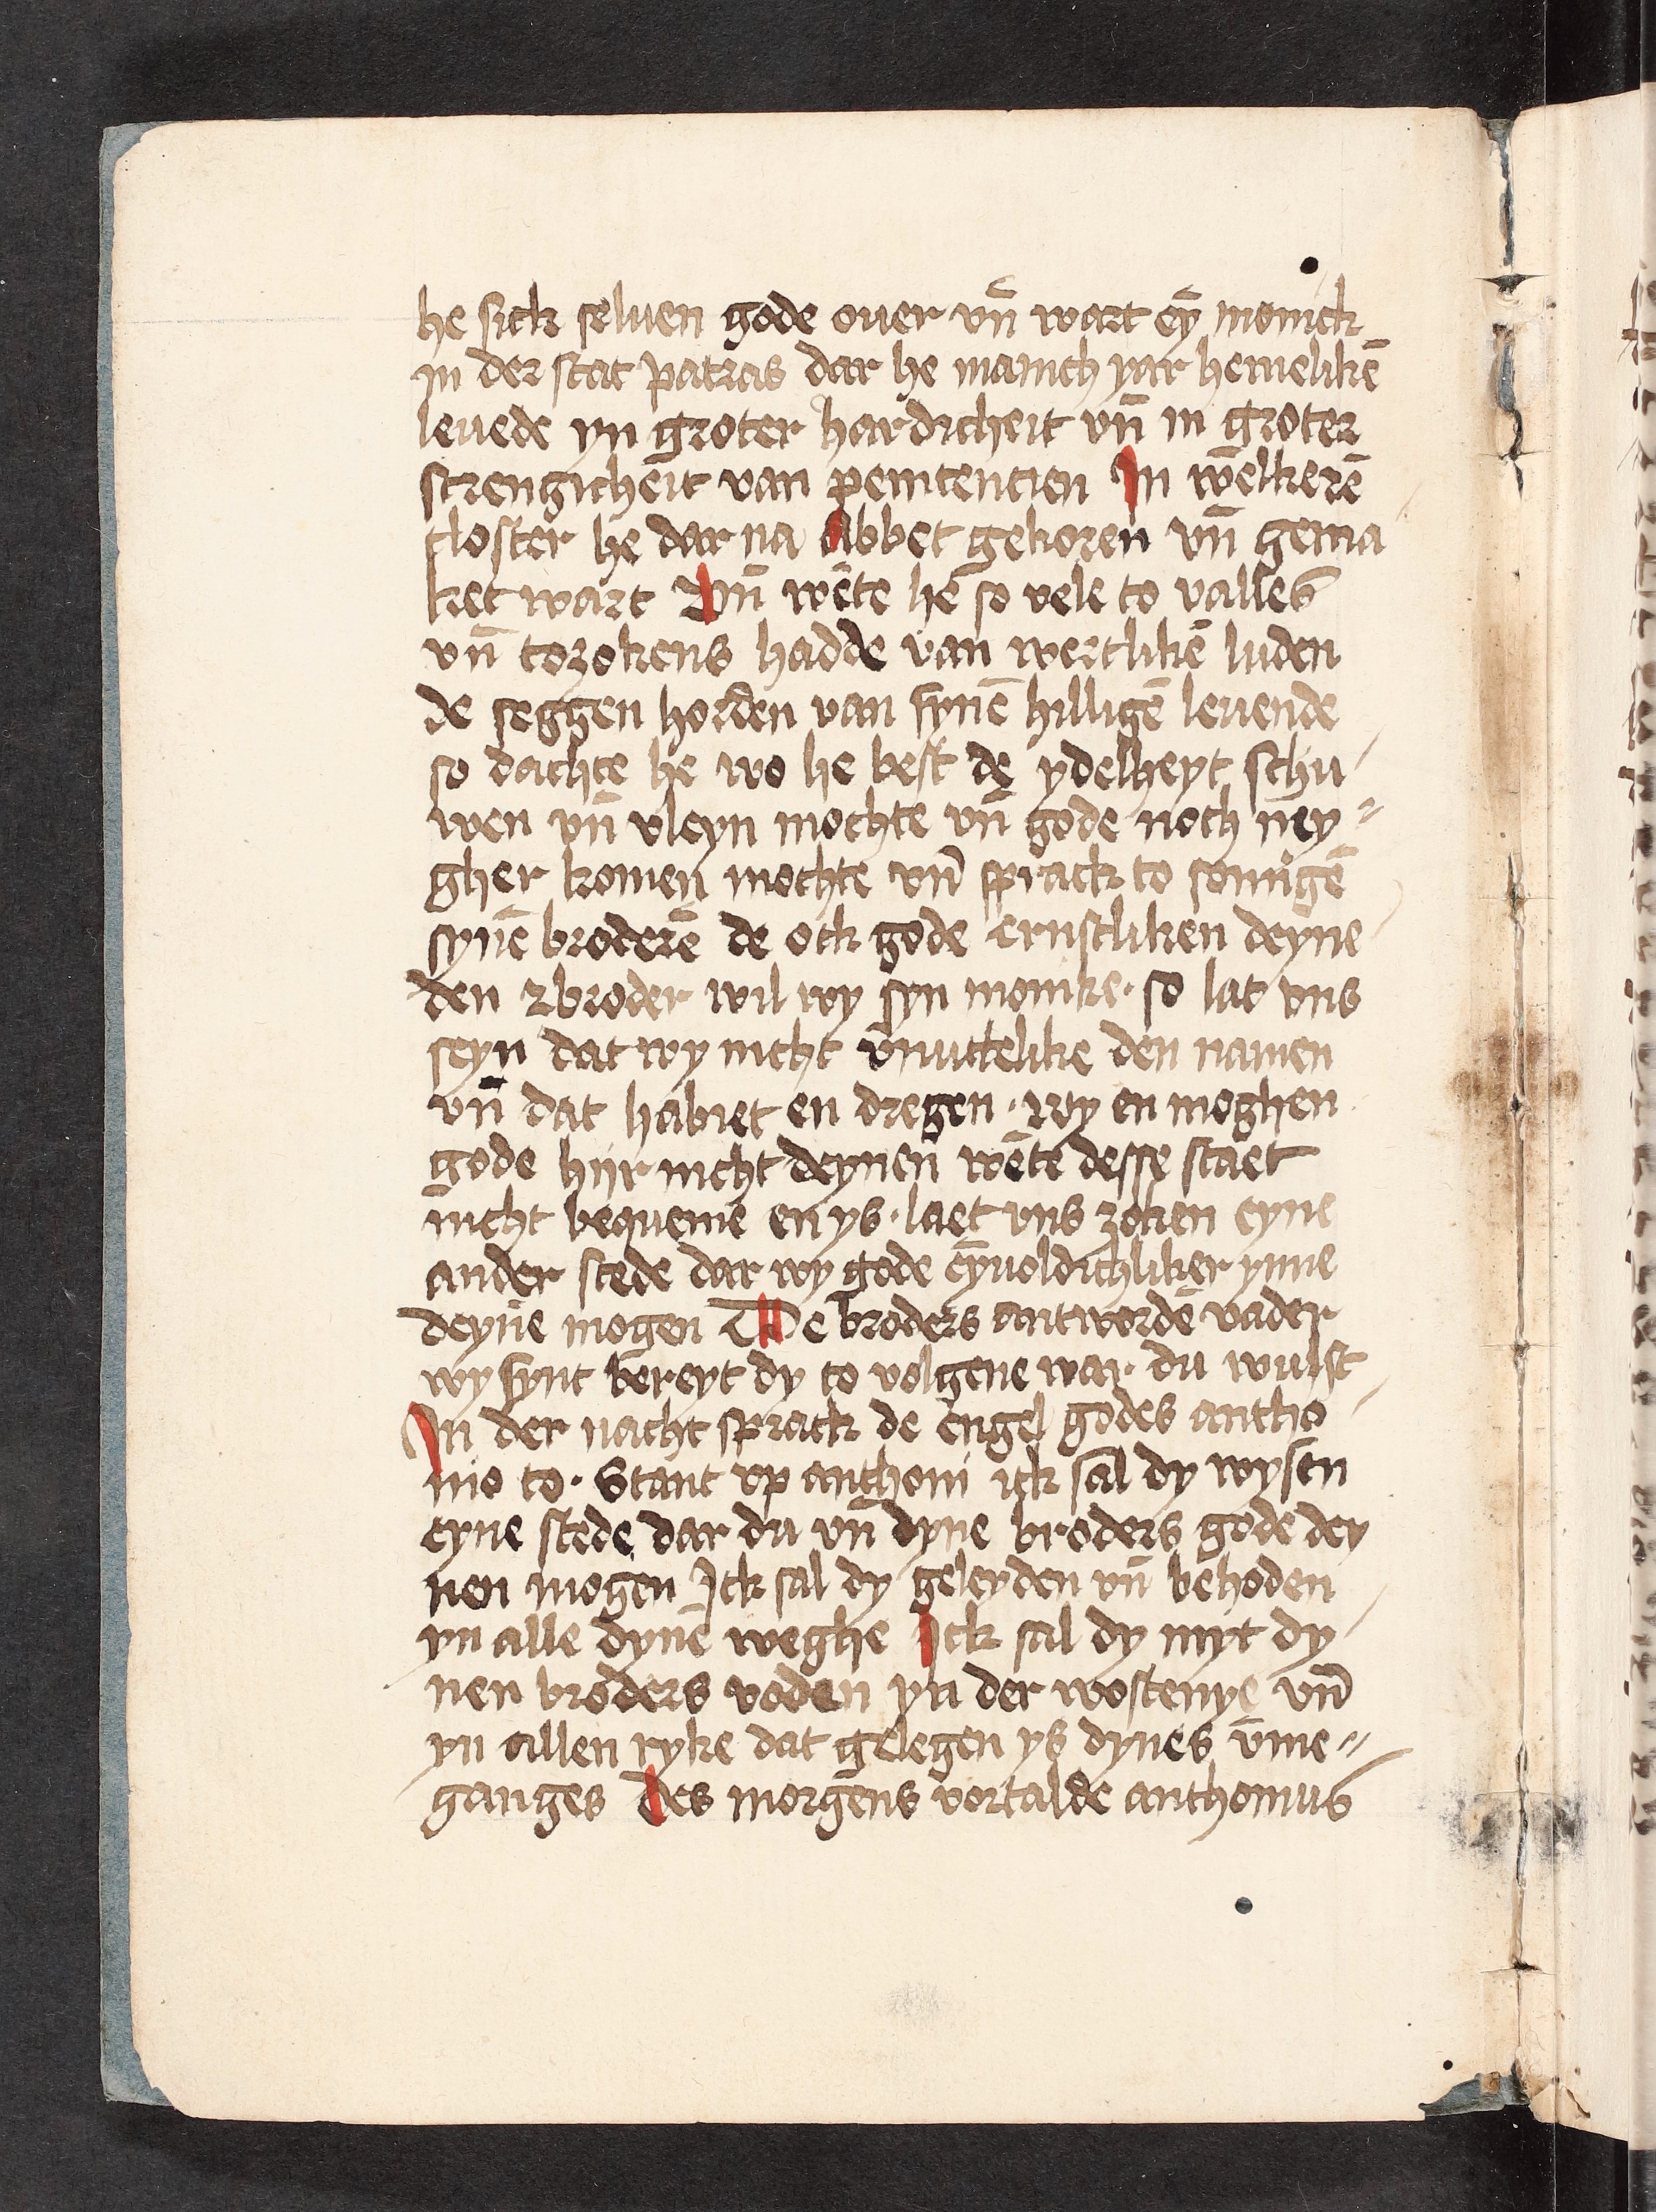 he sick seluen gode ouer vn̄ wart eȳ monick
in der stat patras dar he manich yar hemelikē
leuede yn groter hardicheit vn̄ in groter
strengicheit van penitencien In welkerē
closter he dar na Abbet gekoren vn̄ gema
ket wart Vn̄ wēte he so vele to valles
vn̄ tozokens hadde van wertlikē luden
de seggen horden van synē hilligē leuende
so dachte he wo he best de ydelheyt schu-
wen vn̄ vleyn mochte vn̄ gode noch ney=
gher komen mochte vn̄ sprack to somigē
synē broderē de ock gode ernstliken deyne
den broder wil wy syn monike· so lat vns
seyn dat wy nicht vnuttelike den namen
vn̄ dat habiet en dregen · wy en moghen
gode hiir nicht deynen wēte desse staet
nicht bequeme en ys · laet vns zoken eyne
ander stede dar wy gode eȳuoldichliker ynne
deynē mogen De broders antwordē vader
wy synt bereyt dy to volgene war du wulst
In der nacht sprack de engel godes antho-
nio to· Stant vp anthoni ick sal dy wysen
eyne stede dar du vn̄ dyne broders gode dey
nen mogen Ick sal dy geleyden vn̄ behoden
yn alle dynē weghe Ick sal dy myt dy-
nen broders voden yn der wostenye vn̄
yn allen ryke dat gelegen ys dynes v̄me=
ganges Des morgens vortalde anthonius